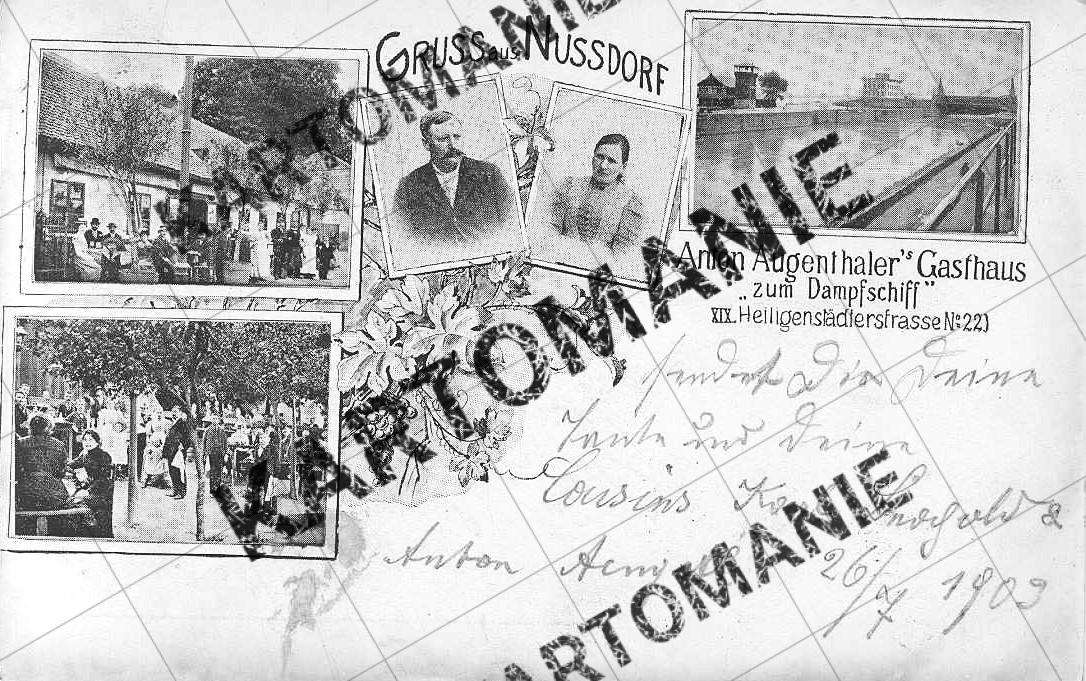 GRUSS aus NUSSDORF
Anton Augenthaler's Gasthaus
„zum Dampfschiff"
XIX. Heiligenstädterstrasse No 221
sendet Dir Deine
Tante und Deine
Cousins Leopold &
Anton
26/7 1903
KARTOMANIE
KARTOMANIE
KARTOMANIE
KARTOMANIE